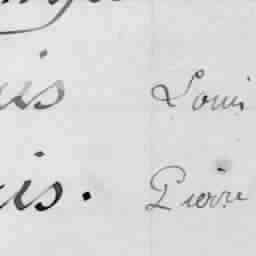 is Louis
is. Pierre